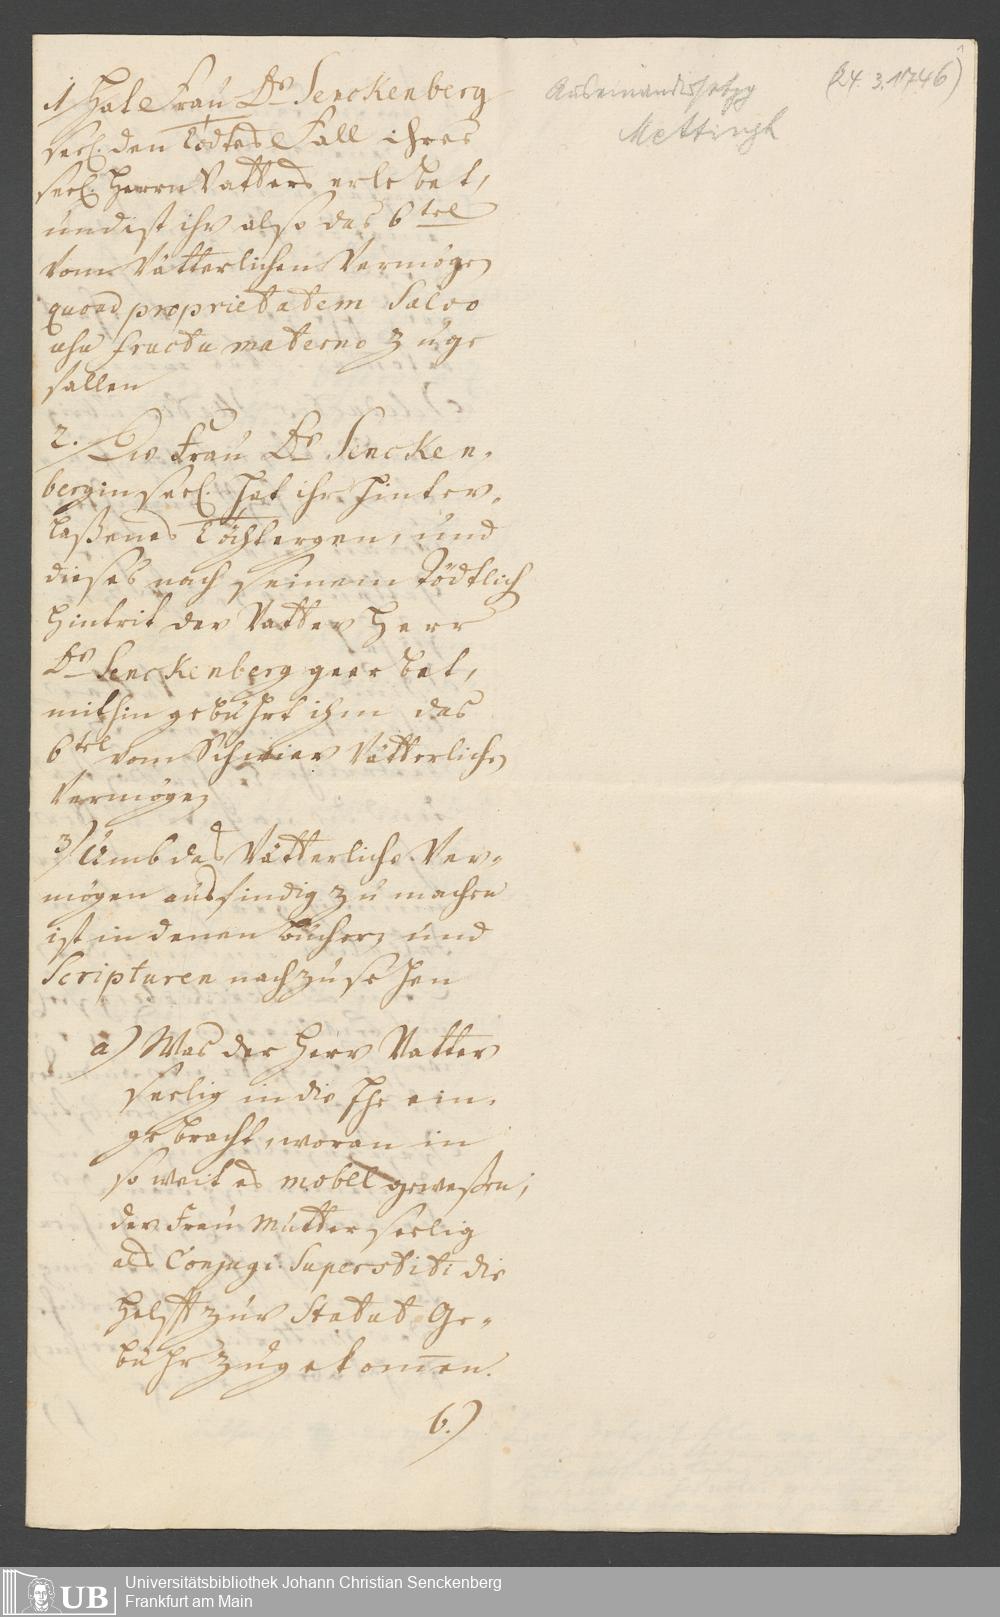 1) Hat Frau Drs Senckenberg
seel. den Todtes Fall ihres
seel. Herrn Vatters erlebet,
und ist ihr also das 6tel
vom Vätterlichen Vermögen
quoad proprietatem Salvo
usu fructu materno zuge
fallen
2. Die Frau Drs Sencken-
bergin seel. hat ihr hinter-
laßenes Töchtergen, und
dieses nach seinem Tödtlich
hintrit der Vatter Herr
Drs Senckenberg geerbet,
mithin gebührt ihm das
6tel vom Schwier Vätterlichen
Vermögen
3) Umb das Vätterliche Ver-
mögen ausfindig zu machen
ist in denen Bücher und
Scripturen nachzusehen
a) Was der Herr Vatter
seelig in die Ehe ein-
gebracht, woran in
so weit es mobel geweßen,
der Frau Mutter seelig
als Conjugi Superstiti die
Helfft zur Statut Ge-
bühr zugekommen.
b.)
Auseinandersetzg
Mettingh
(24.3.1746)
1
UB
Universitätsbibliothek Johann Christian Senckenberg
Frankfurt am Main